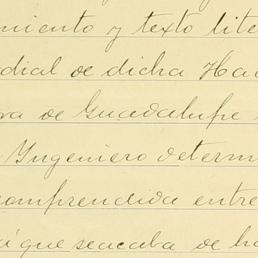 miento y texto lite
dial de dicha Hac
ra de Guadalupe
Ingeniero determ
comprendida entre
que se acaba de ha